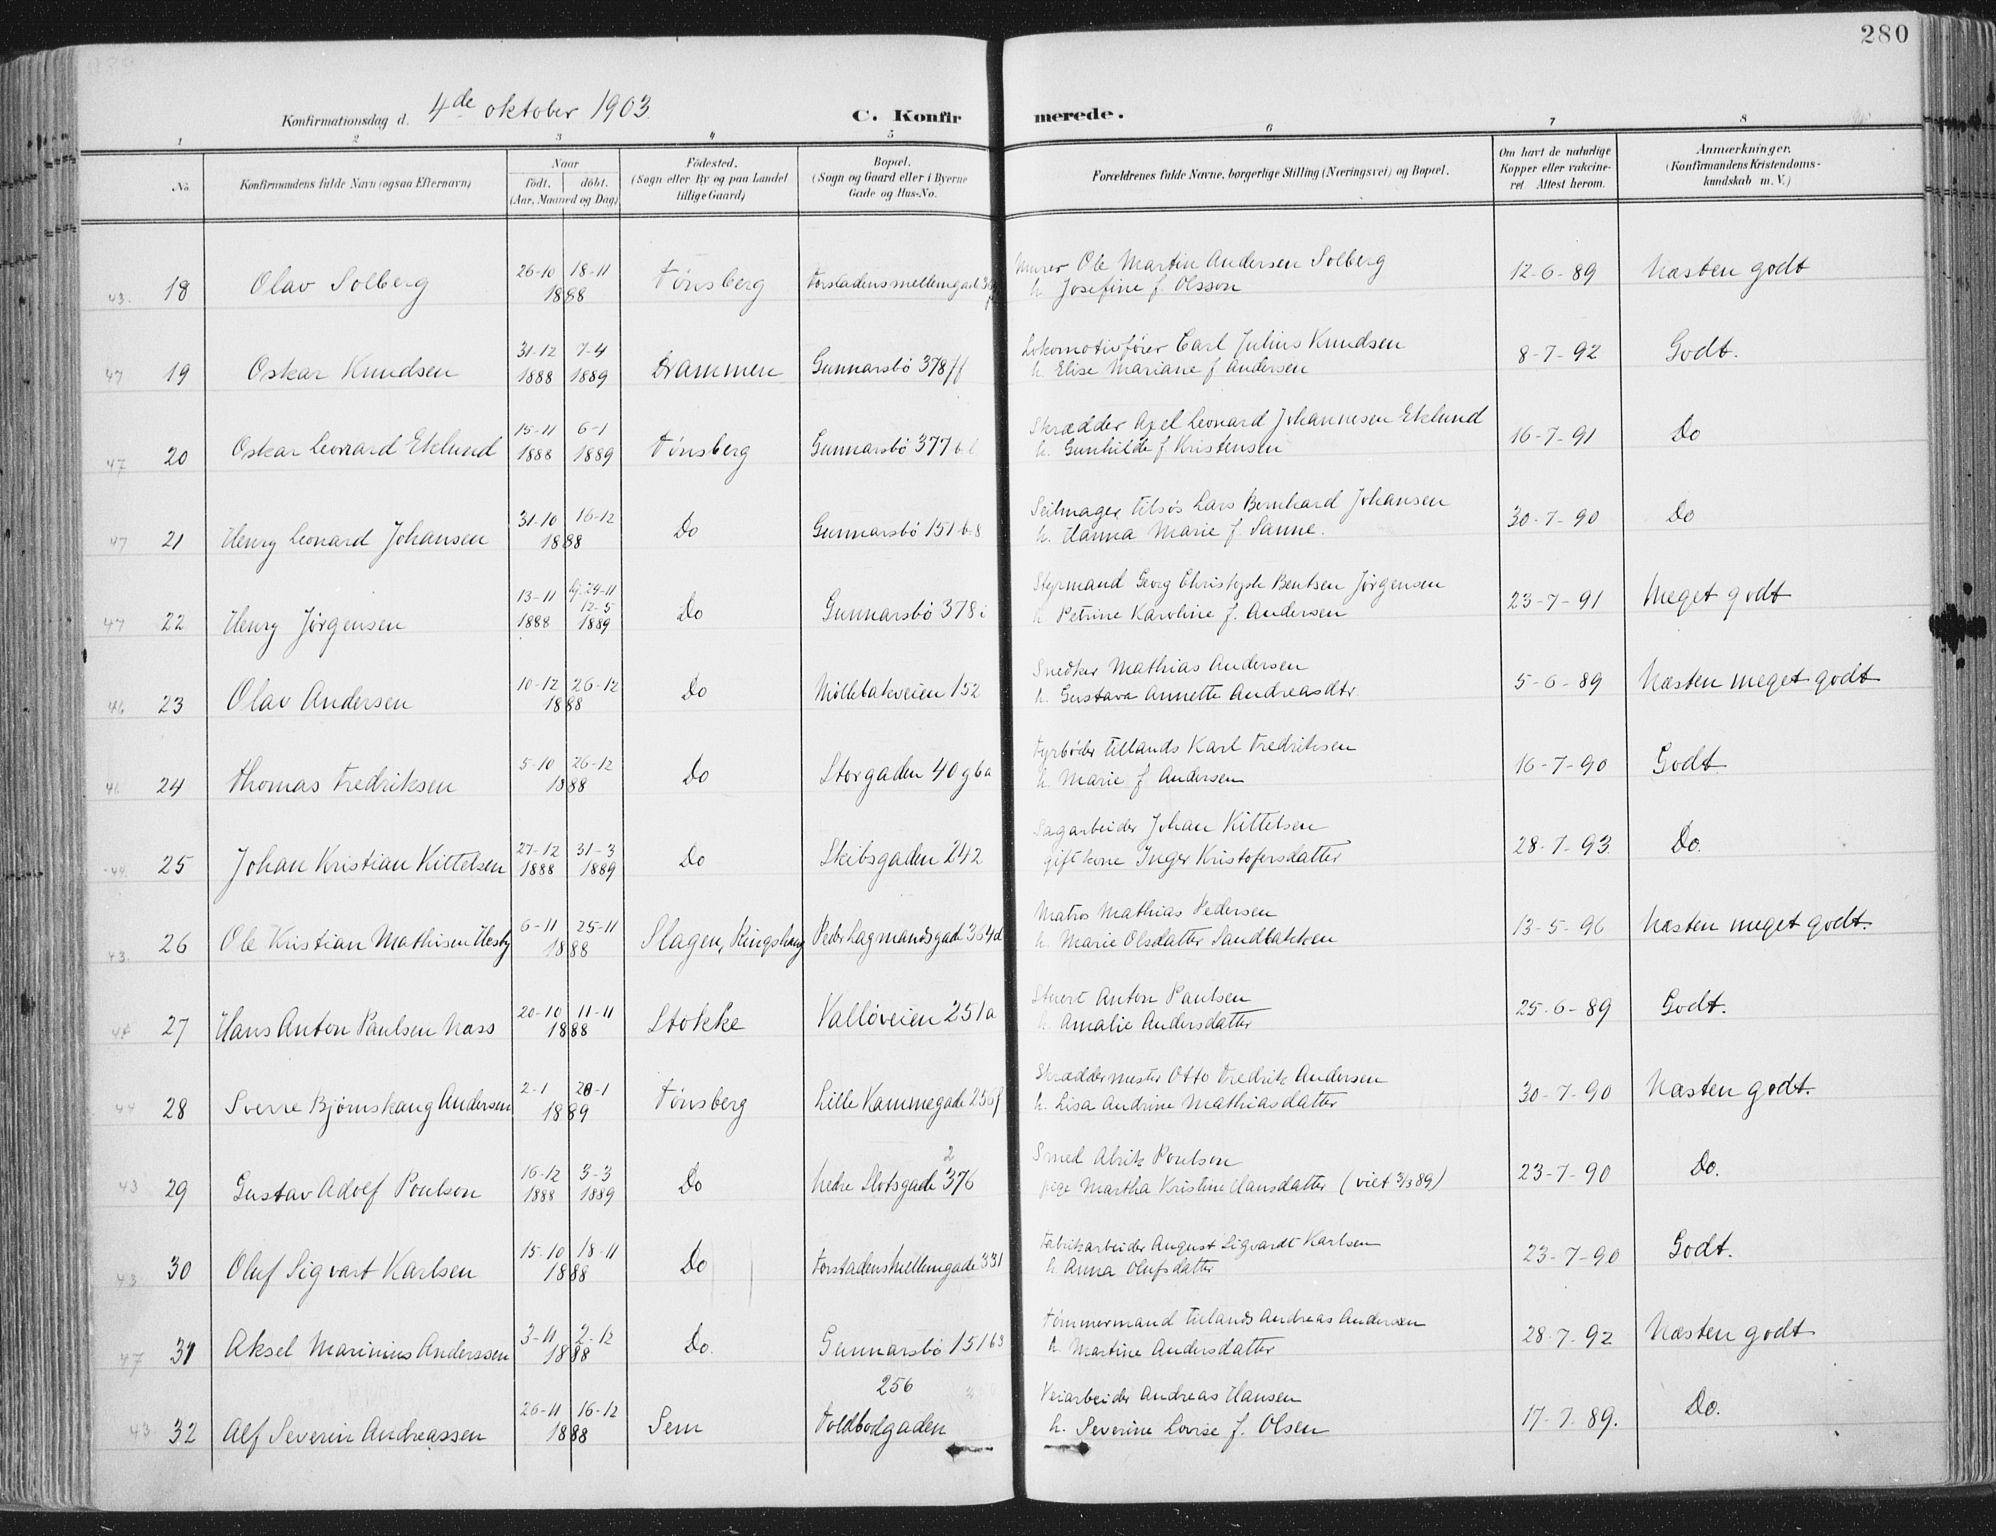 280
Konfirmationsdag d. 4de oktober 1903.
C. Konfirmerede.
1 2 3 4 5 6 7 8
No.
Konfirmandens fulde Navn (ogsaa Efternavn)
Naar
født, døbt.
(Aar, Maaned og Dag)
Fødested.
(Sogn eller By og paa Landet
tillige Gaard)
Bopæl.
(Sogn og Gaard eller i Byerne
Gade og Hus-No.
Forældrenes fulde Navne, borgerlige Stilling (Næringsvei) og Bopæl.
Om havt de naturlige
Kopper eller vakcine-
ret Attest herom.
Anmærkninger.
(Konfirmandens Kristendoms-
kundskab m. V.)
43. 18 Olav Solberg 26-10 18-11 1888 Tönsberg Forstadensmellemgade Murer Ole Martin Andersen Solberg
h. Josefine f. Olsson 12-6-89 Næsten godt
47 19 Oskar Knudsen 31-12 1888 7-4 1889 Drammen Gunnarsbö 378ff Lokomotivfører Carl Julius Knudsen
h. Elise Mariane f Andersen 8-7-92 Godt.
47 20 Oskar Leonard Eklund 15-11 1888 6-1 1889 Tönsberg Gunnarsbö 377 Skrædder Axel Leonard Johannesen Eklund
h. Gunhilde f Kristensen 16-7-91 Do
47 21 Henry Leonard Johansen 31-10 16-12 1888 Do Gunnarsbö 151 b8 Seilmager tilsös Lars Bernhard Johansen
h. Hanna Marie f Sanne. 30-7-90 Do
47 22 Henry Jörgensen 13-11 1888 hj. 29-11 12-5 1889 Do Gunnarsbö 378 i Styrmand Georg Christoph Bentsen Jörgensen
h. Petrine Karoline f. Andersen 23-7-91 Meget godt
46 23 Olav Andersen 10-12 26-12 1888 Do Möllebakveien 152 Snedker Mathias Andersen
h. Gustava Annette Andreasdtr 5-6-89 Næsten meget godt
46 24 Thomas Fredriksen 5-10 26-12 1888 Do Storgaden 40 g6a Fyrböder tillands Karl Fredriksen
h. Marie f Andersen 16-7-90 Godt
44. 25 Johan Kristian Kittelsen 27-12 1888 31-3 1889 Do Skibsgaden 242 Sagarbeider Johan Kittelsen
gift kone Inger Kristofersdatter 28-7-93 Do.
43. 26 Ole Kristian Mathisen Hesby 6-11 25-11 1888 Slagen, Ringshaug Peder Lagmandsgade 364d Matros Mathias Pedersen
h. Marie Olsdatter Sandbakken 13-5-96 Næsten meget godt.
27 Hans Anton Paulsen Næss 20-10 11-11 1888 Stokke Vallöveien 251a Stuert Anton Paulsen
h. Amalie Andersdatter 25-6-89 Godt.
44 28 Sverre Bjørnskaug Andersen 2-1 20-1 1889 Tönsberg Lille Kammegade 256f Skræddermester Otto Fredrik Andersen
h. Lisa Andrine Mathiasdatter 30-7-90 Næsten godt.
43 29 Gustav Adolf Poulson 16-12 1888 3-3 1889 Do Nedre Slotsgade 376 2 Smed Alrik Poulson
pige Martha Kristine Hansdatter (viet 3/3 89) 23-7-90 Do.
43 30 Oluf Sigvart Karlsen 15-10 18-11 1888 Do Forstadensmellemgade 331 Fabrikarbeider August Sigvardt Karlsen
h. Anna Olufsdatter 23-7-90 Godt.
47 31 Aksel Marinius Anderssen 3-11 2-12 1888 Do. Gunnarsbö 151 b3 Tömmermand tillands Andreas Andersen
h. Martine Andersdatter 28-7-92 Næsten godt
43 32 Alf Severin Andreassen 26-11 16-12 1888 Sem 256 Toldbodgaden Veiarbeider Andreas Hansen
h. Severine Lovise f. Olsen 17-7-89. Do.